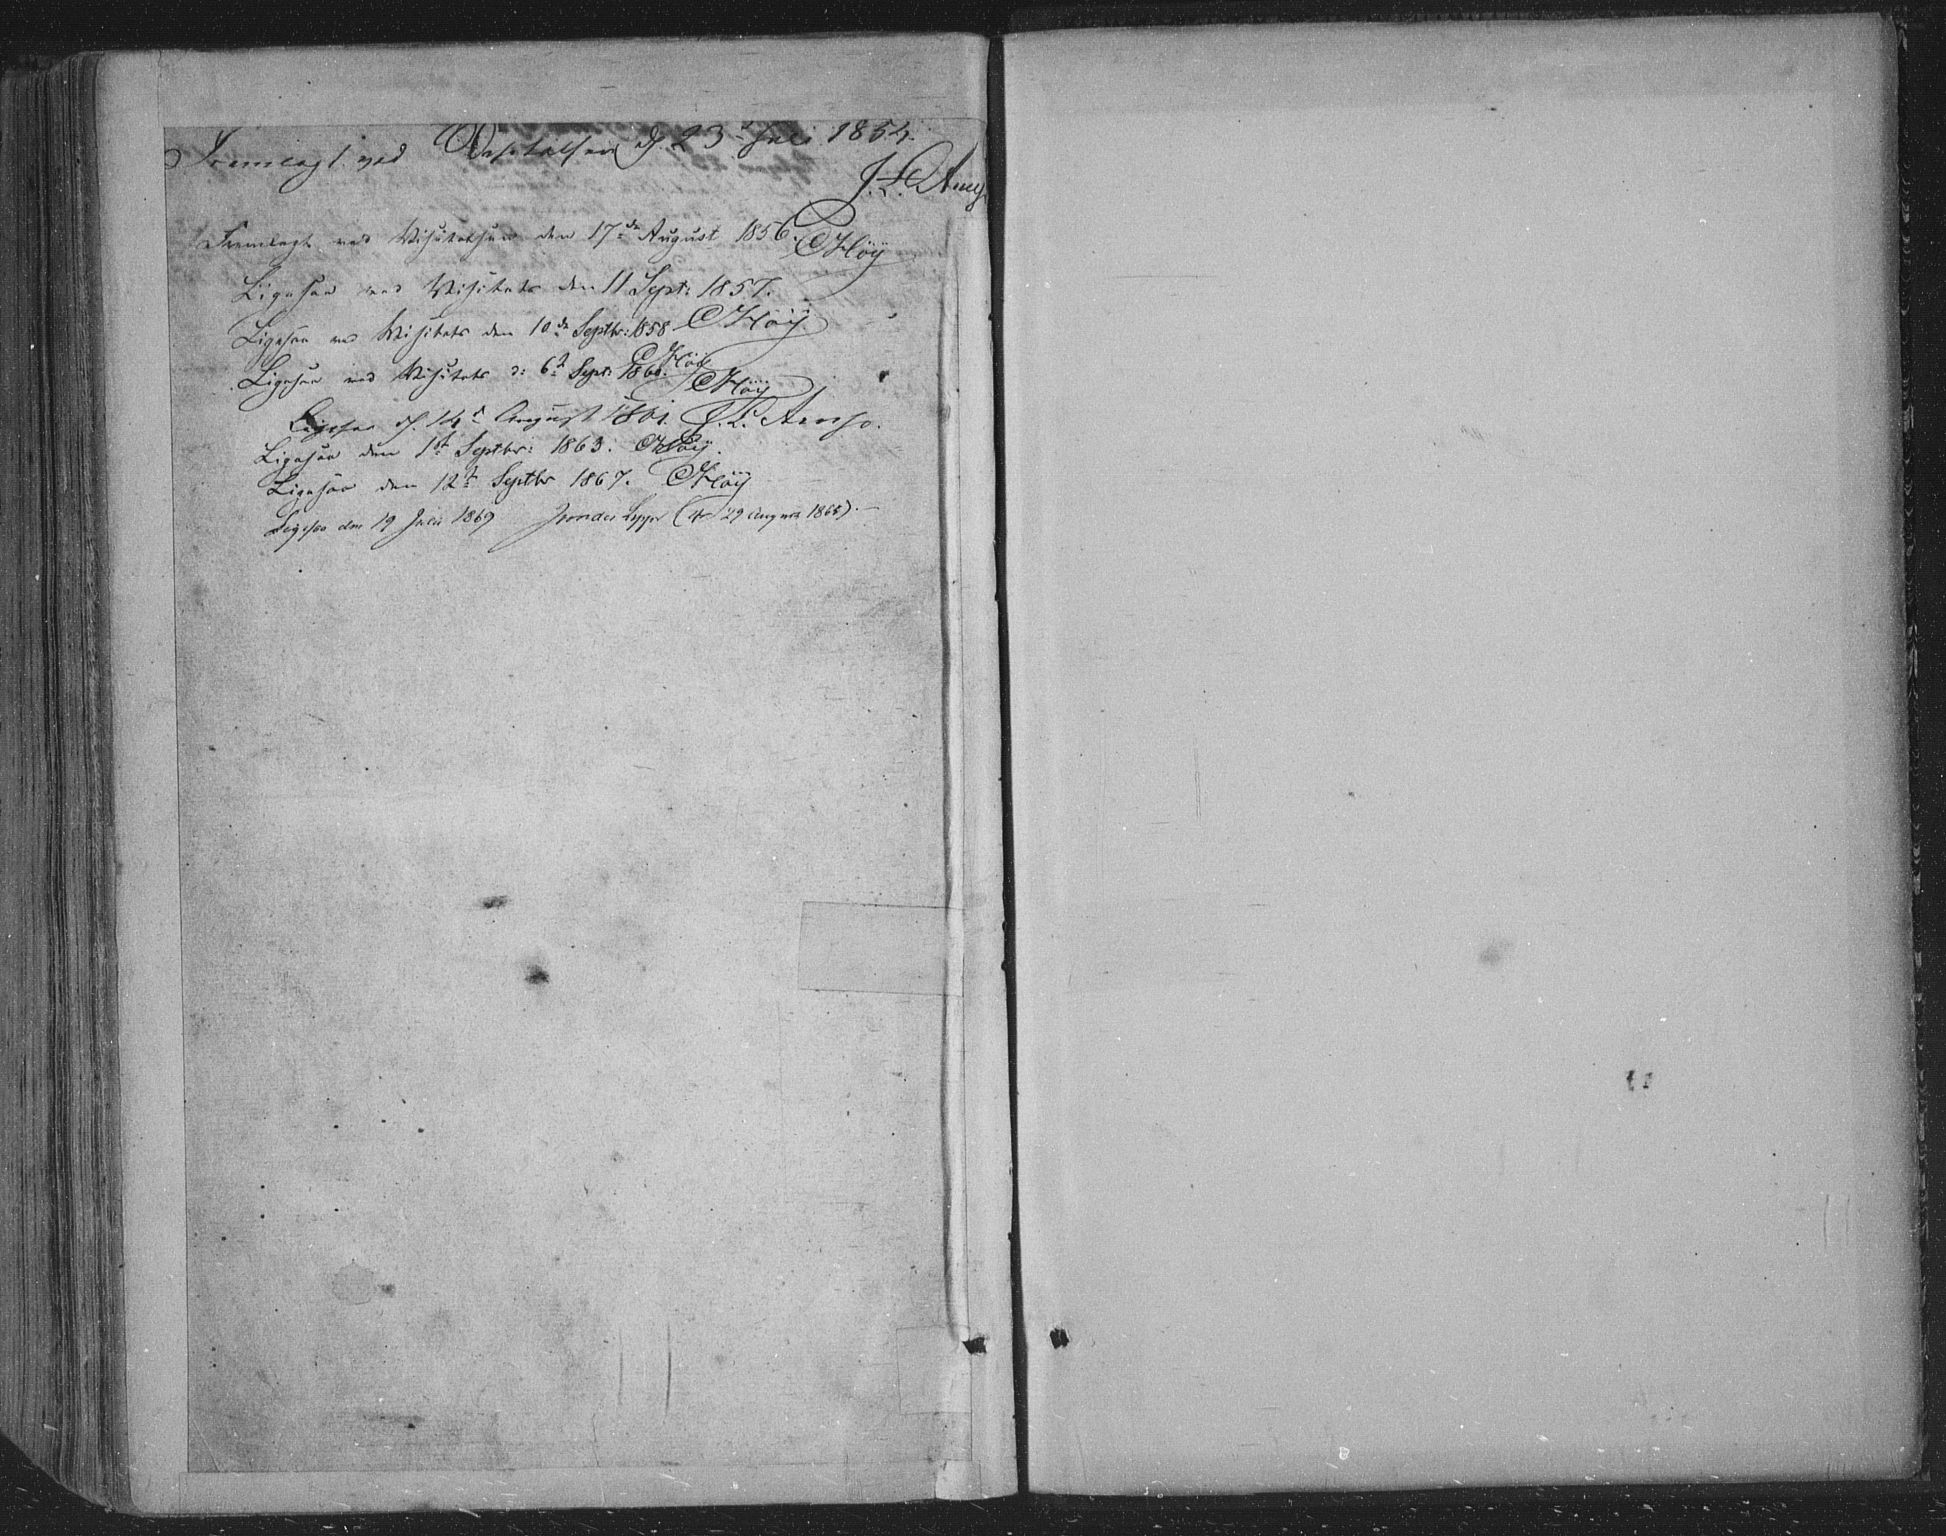 Fremlagt ved Visitatsen d. 23 Juli 1854.
J. L. Arup
Fremlagt ved Visitatsen den 17de August 1856. CHöÿ
Ligesaa ved Visitats den 11 Sept: 1857.
CHöÿ.
Ligesaa ved Visitats den 10de Septbr: 1858
CHöÿ
Ligesaa ved Visitats d: 6te Sept: 1860.
CHöÿ
Ligesaa d. 14de August 1861. J. L. Arup.
Ligesaa den 1ste Septbr: 1863. CHöÿ.
Ligesaa den 12te Septbr 1867. CHöÿ
Ligesaa den 19 Juli 1869 (29 August 1865).